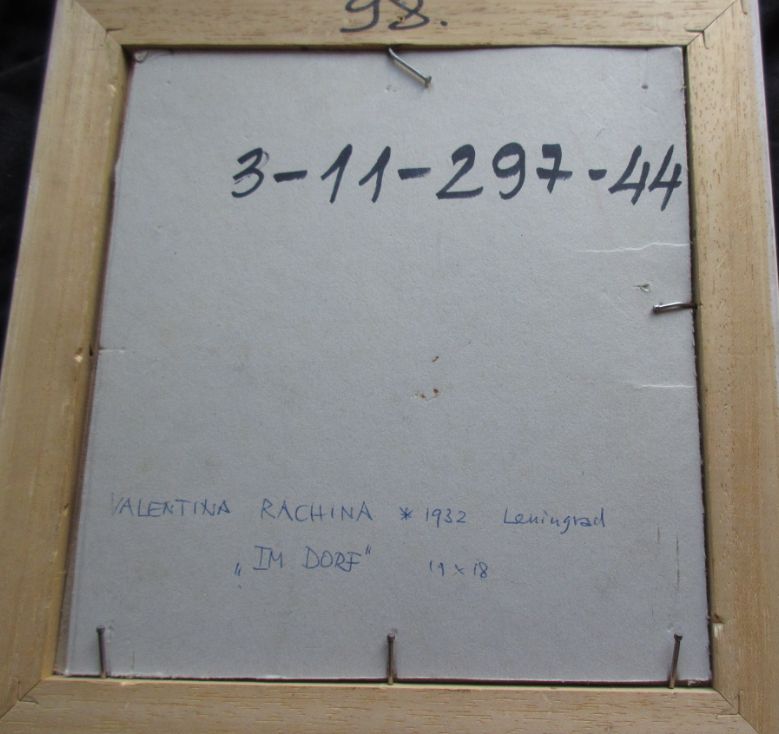 98.
3-11-297-44
VALENTINA RACHINA * 1932 Leningrad
„IM DORF“ 19 x 18